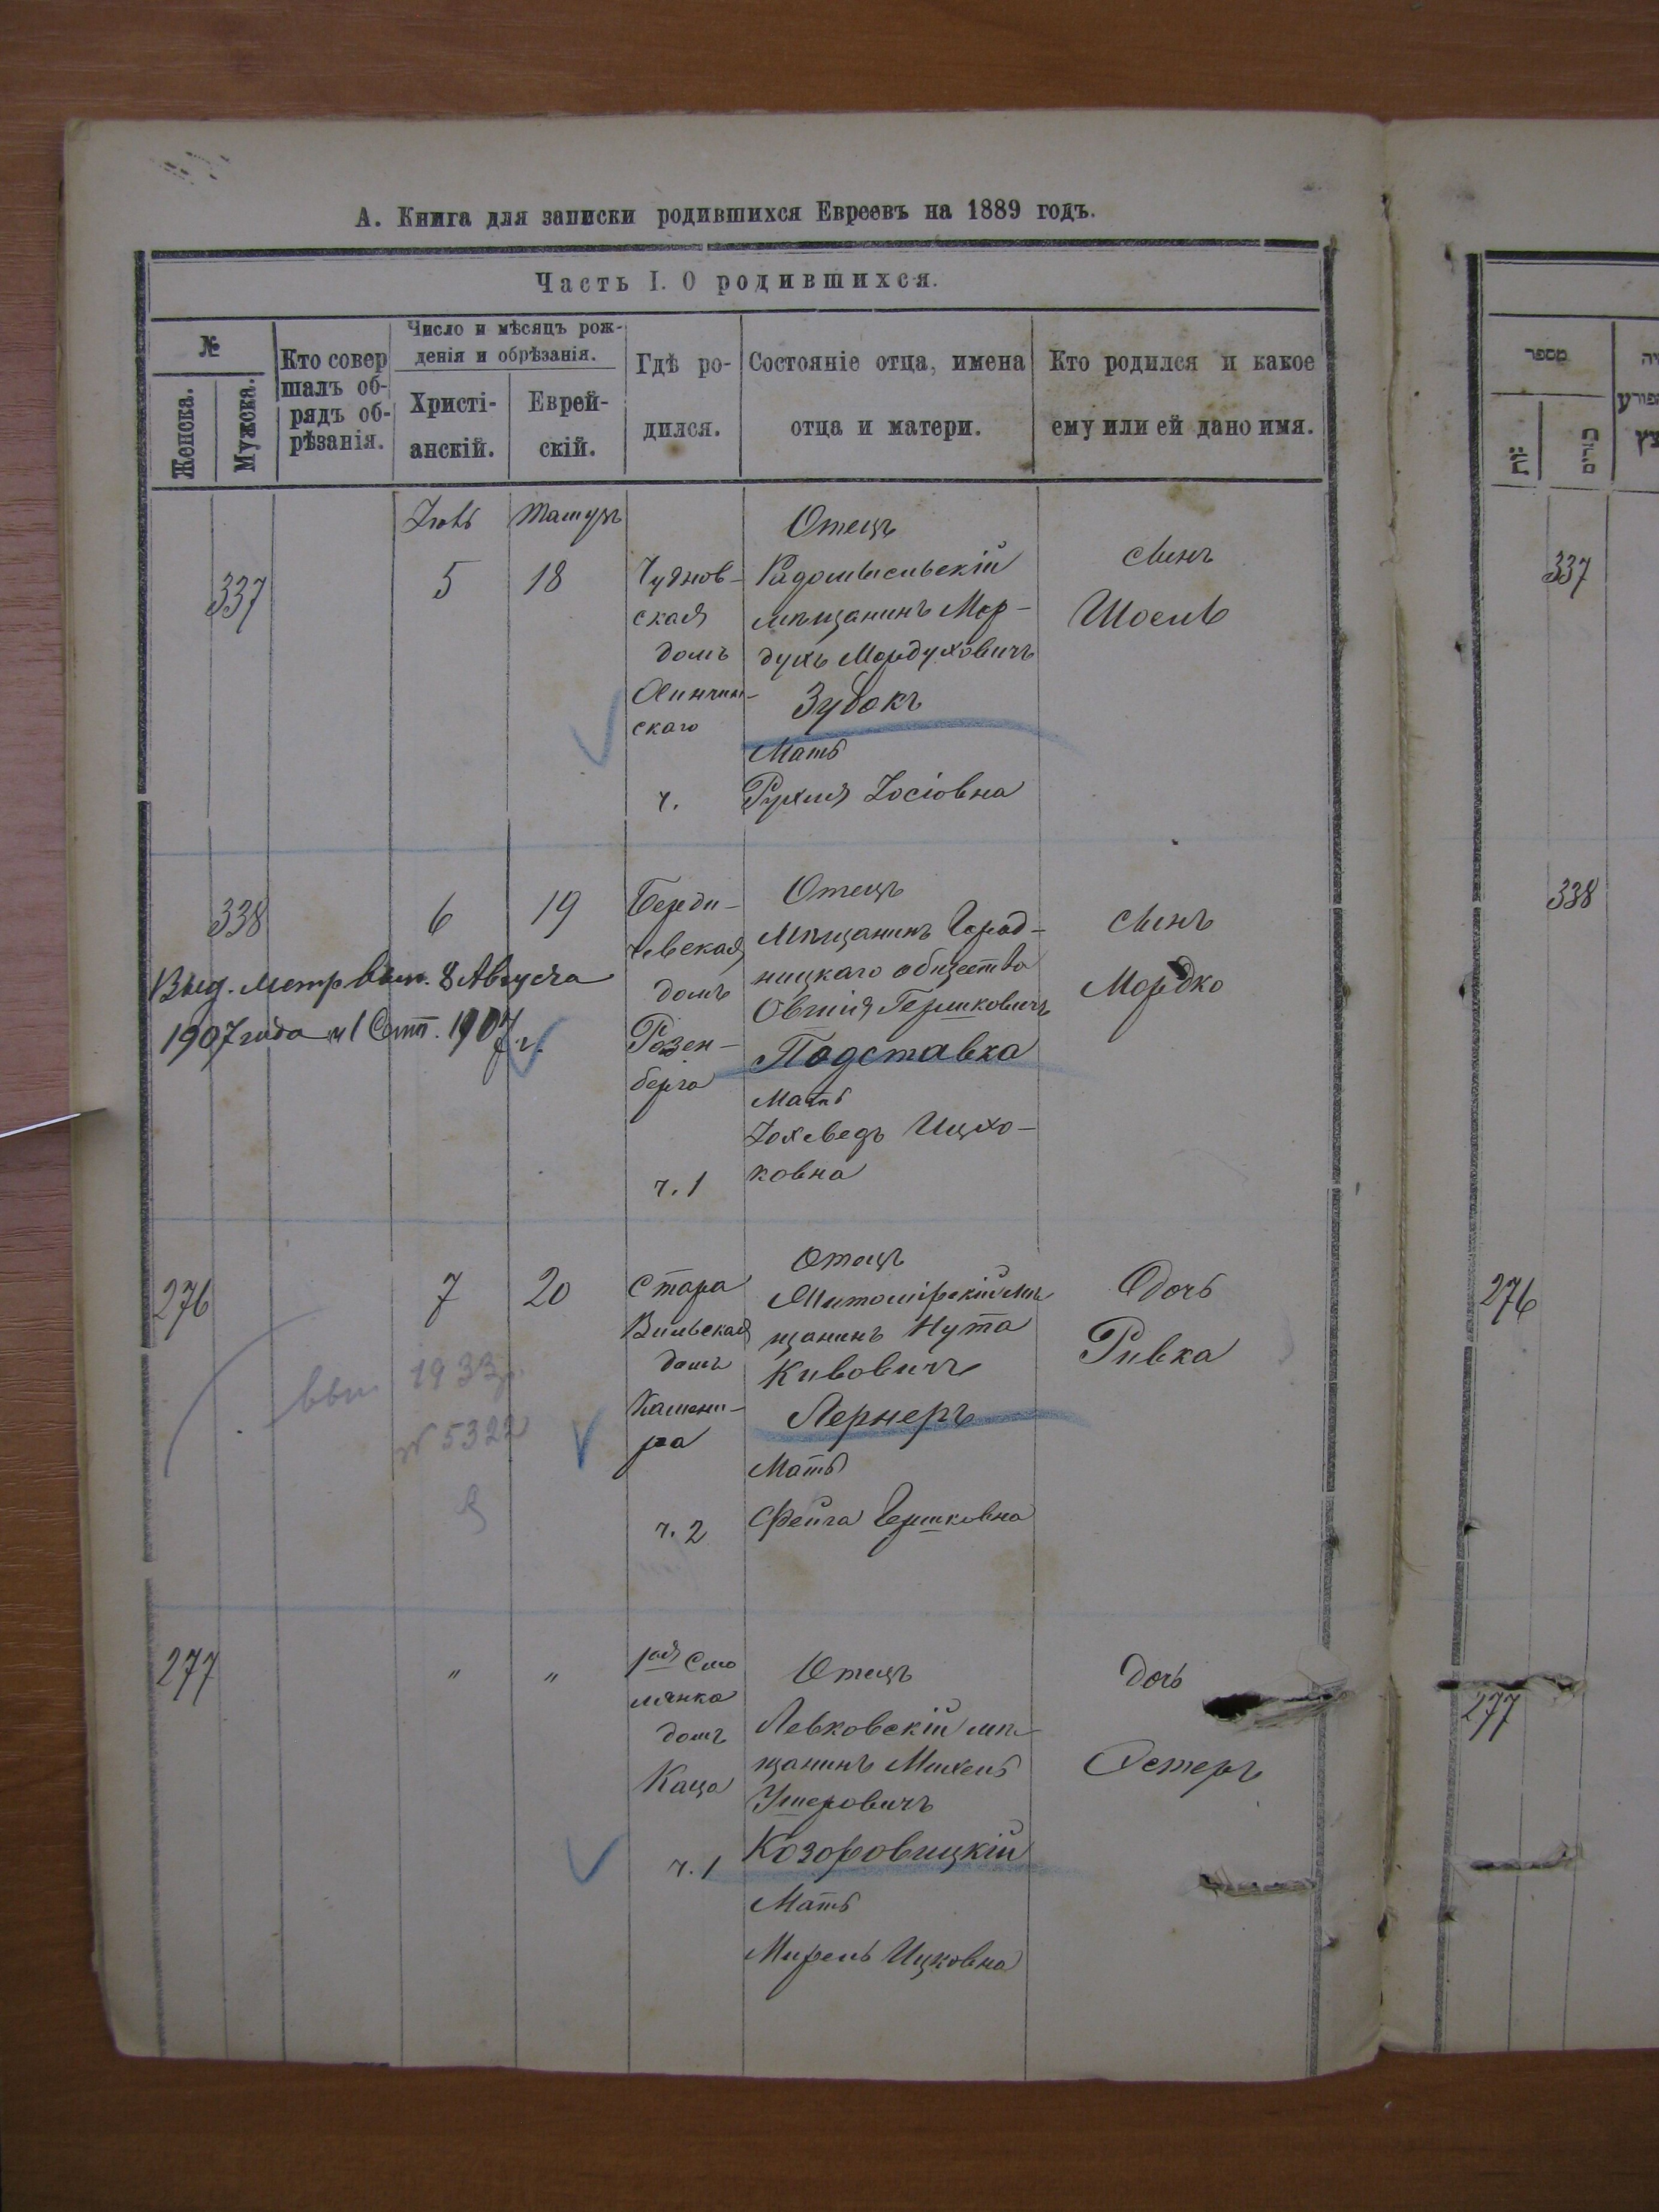 А. Книга для записки родившихся Евреевъ на 1889 годъ.
Часть I. О родившихся.
№
Женска.
Мужска.
Кто совер
шалъ об-
рядъ об-
рѣзанія.
Число и мѣсяцъ рож-
денія и обрѣзанія.
Христі-
анскій.
Еврей-
скій.
Гдѣ ро-
дился.
Состояніе отца, имена
отца и матери.
Кто родился и какое
ему или ей дано имя.
מספר
337
5
18
Чуднов-
ская
домъ
скаго
ч.
Отецъ
Радомысльскій
мѣщанинъ Мор-
духъ Мордуховичъ
Зубокъ
Мать
Рухля Іосіовна
сынъ
Шоель
337
338
6
19
Выд. метр вып. 8 Августа
1907 года и 1 Сент. 1907 г.
Берди-
чевская
домъ
Розен-
берга
ч. 1
Отецъ
мѣщанинъ Город-
ницкаго общества
Овшія Гершковичъ
Подставка
Мать
Іохеведъ Ицко-
ковна
сынъ
Мордко
338
276
7
20
1933г.
№ 5322
Стара
Вильская
домъ
ра
ч. 2
Отецъ
Житомірскій мѣ
щанинъ Нута
Кивовичъ
Лернеръ
Мать
Фейга Гершковна
Дочь
Ривка
276
277
"
"
домъ
Каца
ч. 1
Отецъ
Левковскій мѣ-
щанинъ Михель
Ушеровичъ
Козоровицкій
Мать
Мирель Ицковна
дочь
Эстеръ
277